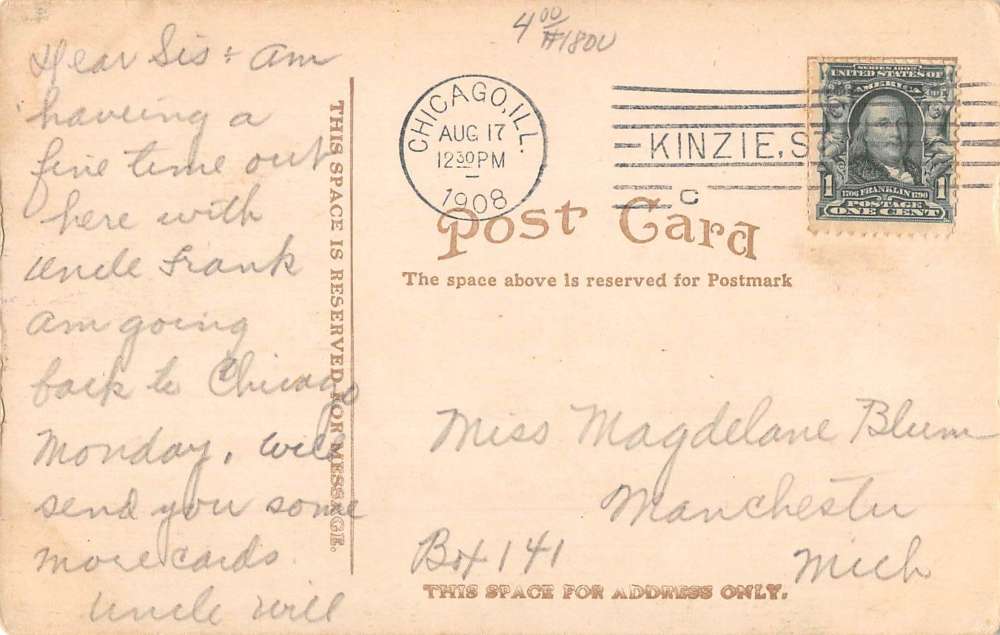 4 00
#180U
Dear Sis + am
haveing a
fine time out
here with
Uncle Frank
am going
back to Chicago
Monday. will
send you some
more cards
Uncle Will
THIS SPACE IS RESERVED FOR MESSAGE.
CHICAGO, ILL.
AUG 17
12 30 PM
1908
KINZIE, S
C
SERIES 1902
UNITED STATES OF
AMERICA
1706 FRANKLIN 1790
POSTAGE
1 ONE CENT 1
Post Card
The space above is reserved for Postmark
Miss Magdelane Blum
Manchester
Box 141
Mich
THIS SPACE FOR ADDRESS ONLY.